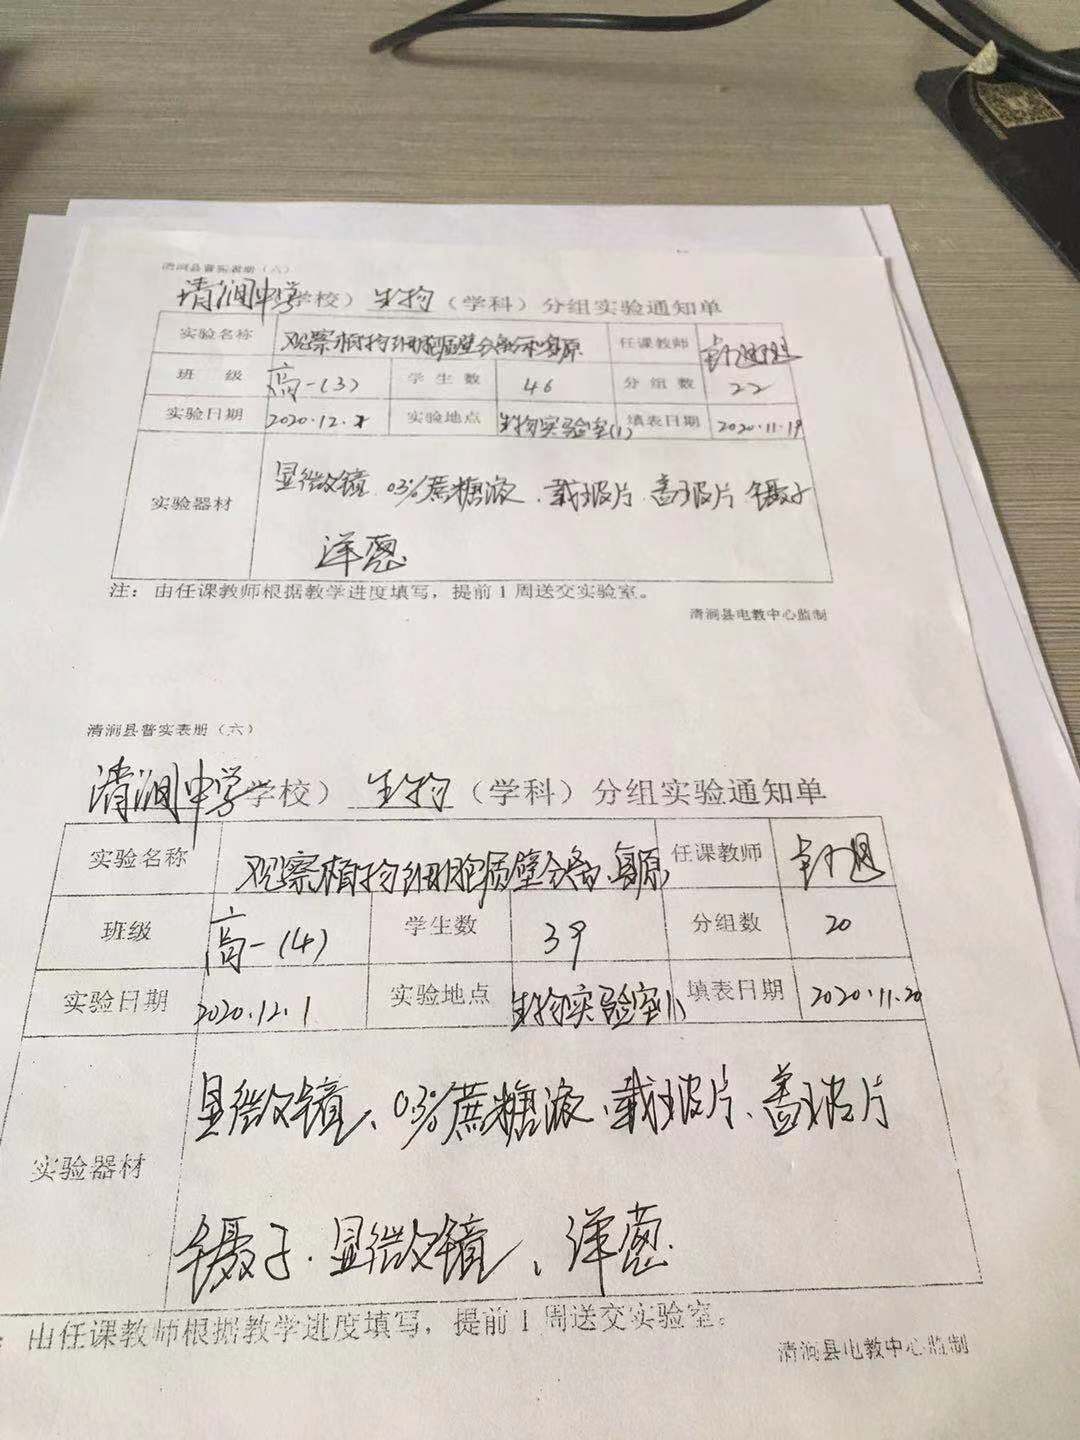 清涧县普实表册（六）
清涧中学学校） 生物 （学科）分组实验通知单
实验名称 观察植物细胞质壁分离和复原 任课教师
班 级 高一(3) 学 生 数 46 分 组 数 22
实验日期 2020.12. 实验地点 生物实验室(1) 填表日期 2020.11.19
显微镜 03%蔗糖液、载玻片 盖玻片 镊子
实验器材
洋葱
注：由任课教师根据教学进度填写，提前1周送交实验室。
清涧县电教中心监制
清涧县普实表册（六）
清涧中学学校） 生物 （学科）分组实验通知单
实验名称 观察植物细胞质壁分离、复原 任课教师
班级 高一(4) 学生数 39 分组数 20
实验日期 2020.12.1 实验地点 生物实验室(1) 填表日期 2020.11.20
显微镜、03%蔗糖液、载玻片、盖玻片
实验器材
镊子.显微镜、洋葱.
：由任课教师根据教学进度填写，提前1周送交实验室。
清涧县电教中心监制